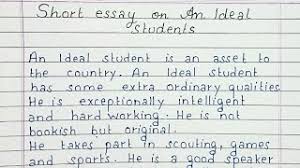 Short essay on An Ideal
Students
An Ideal student is an asset to
the country. An Ideal student
has some extra ordinary qualities
He is exceptionally intelligent
and hard working. He is not
bookish but original.
He takes part in scouting, games
and sports. He is a good speaker